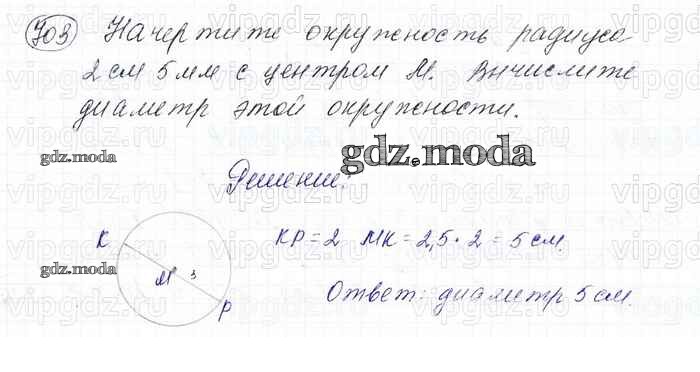 703 Начертите окружность радиуса
2 см 5 мм с центром М. Вычислите
диаметр этой окружности.
gdz.moda
gdz.moda
Решение:
К
КР = 2 МК = 2,5 · 2 = 5 см.
gdz.moda
М
Р
Ответ: диаметр 5 см.
vipgdz.ru